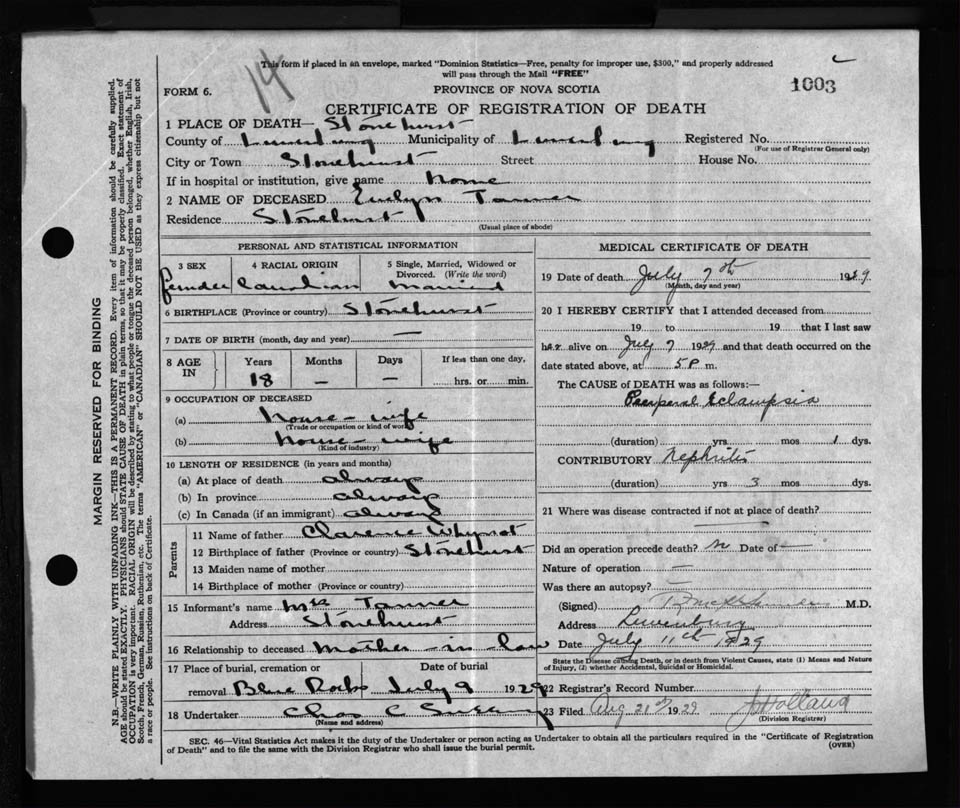 14
This form if placed in an envelope, marked "Dominion Statistics—Free, penalty for improper use, $300," and properly addressed
will pass through the Mail "FREE"
FORM 6.
PROVINCE OF NOVA SCOTIA
1003
CERTIFICATE OF REGISTRATION OF DEATH
1 PLACE OF DEATH— Stonehurst
County of Lunenburg Municipality of Lunenburg Registered No.
(For use of Registrar General only)
City or Town Stonehurst Street House No.
If in hospital or institution, give name home
2 NAME OF DECEASED Evelyn Tanner
Residence Stonehurst
(Usual place of abode)
PERSONAL AND STATISTICAL INFORMATION
3 SEX 4 RACIAL ORIGIN 5 Single, Married, Widowed or
Divorced. (Write the word)
female married
6 BIRTHPLACE (Province or country) Stonehurst
7 DATE OF BIRTH (month, day and year) —
8 AGE IN Years Months Days If less than one day,
18 — — hrs. or min.
9 OCCUPATION OF DECEASED
(a) house-wife
(Trade or occupation or kind of work)
(b) house-wife
(Kind of industry)
10 LENGTH OF RESIDENCE (in years and months)
(a) At place of death always
(b) In province always
(c) In Canada (if an immigrant) always
Parents
11 Name of father Clarence Whynot
12 Birthplace of father (Province or country) Stonehurst
13 Maiden name of mother
14 Birthplace of mother (Province or country)
15 Informant's name Mrs Tanner
Address Stonehurst
16 Relationship to deceased mother-in-law
17 Place of burial, cremation or Date of burial
removal Blue Rocks July 9 1929
18 Undertaker Chas C
(Name and address)
MEDICAL CERTIFICATE OF DEATH
19 Date of death July 7th 1929
(Month, day and year)
20 I HEREBY CERTIFY that I attended deceased from
19 to 19 that I last saw
her alive on July 7 1929 and that death occurred on the
date stated above, at 5 P m.
The CAUSE OF DEATH was as follows:—
Puerperal Eclampsia
(duration) yrs mos 1 dys.
CONTRIBUTORY Nephritis
(duration) yrs 3 mos dys.
21 Where was disease contracted if not at place of death?
Did an operation precede death? no Date of —
Nature of operation —
Was there an autopsy? —
(Signed) M.D.
Address Lunenburg
Date July 11th 1929
State the Disease causing Death, or in death from Violent Causes, state (1) Means and Nature
of Injury, (2) whether Accidental, Suicidal or Homicidal.
22 Registrar's Record Number
23 Filed Aug 21st 1929 Holland
(Division Registrar)
SEC. 46—Vital Statistics Act makes it the duty of the Undertaker or person acting as Undertaker to obtain all the particulars required in the "Certificate of Registration
of Death" and to file the same with the Division Registrar who shall issue the burial permit.
(OVER)
MARGIN RESERVED FOR BINDING
N.B.—WRITE PLAINLY WITH UNFADING INK—THIS IS A PERMANENT RECORD. Every item of information should be carefully supplied.
AGE should be stated EXACTLY. PHYSICIANS should STATE CAUSE OF DEATH in plain terms, so that it may be properly classified. Exact statement of
OCCUPATION is very important. RACIAL ORIGIN will be described by stating to what people or tongue the deceased person belonged, whether English, Irish,
Scotch, French, German, Russian, Ruthenian, etc. The terms "AMERICAN" or "CANADIAN" SHOULD NOT BE USED as they express citizenship but not
a race or people. See instructions on back of Certificate.